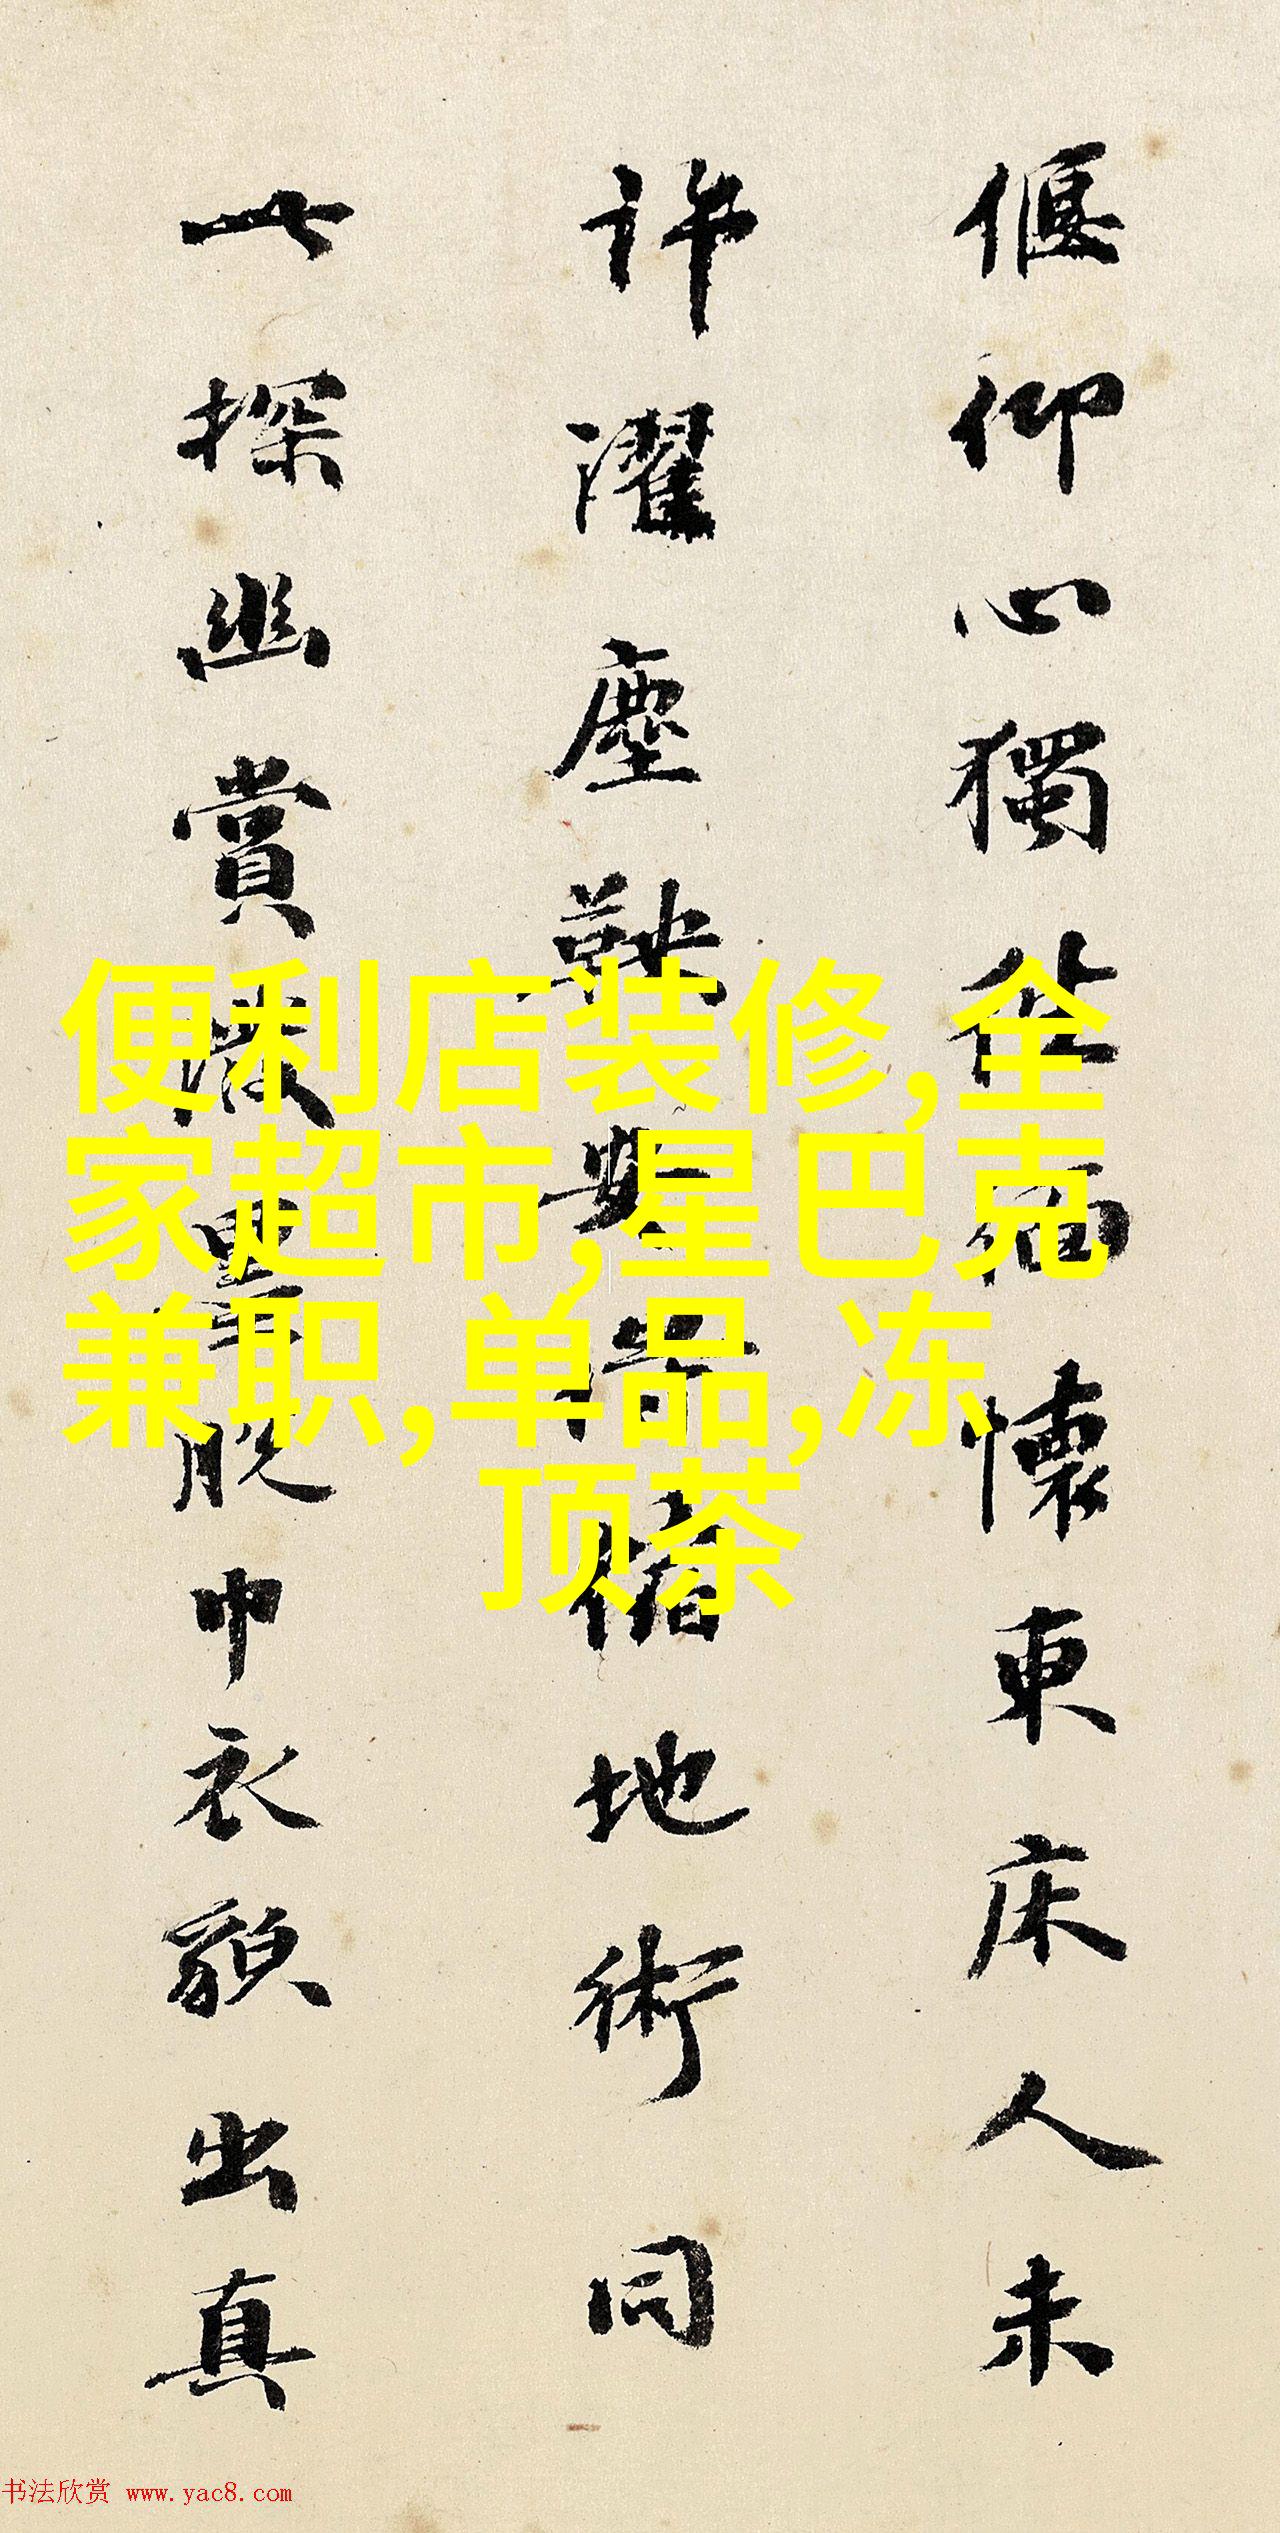 偃仰心獨往懷東床人未
許濯塵鞅安得地術同
一探幽賞墨脫巾衣貌出真
便利店装修,全
家超市,星巴克
兼职,单品,冻
顶茶
书法欣赏 www.yac8.com